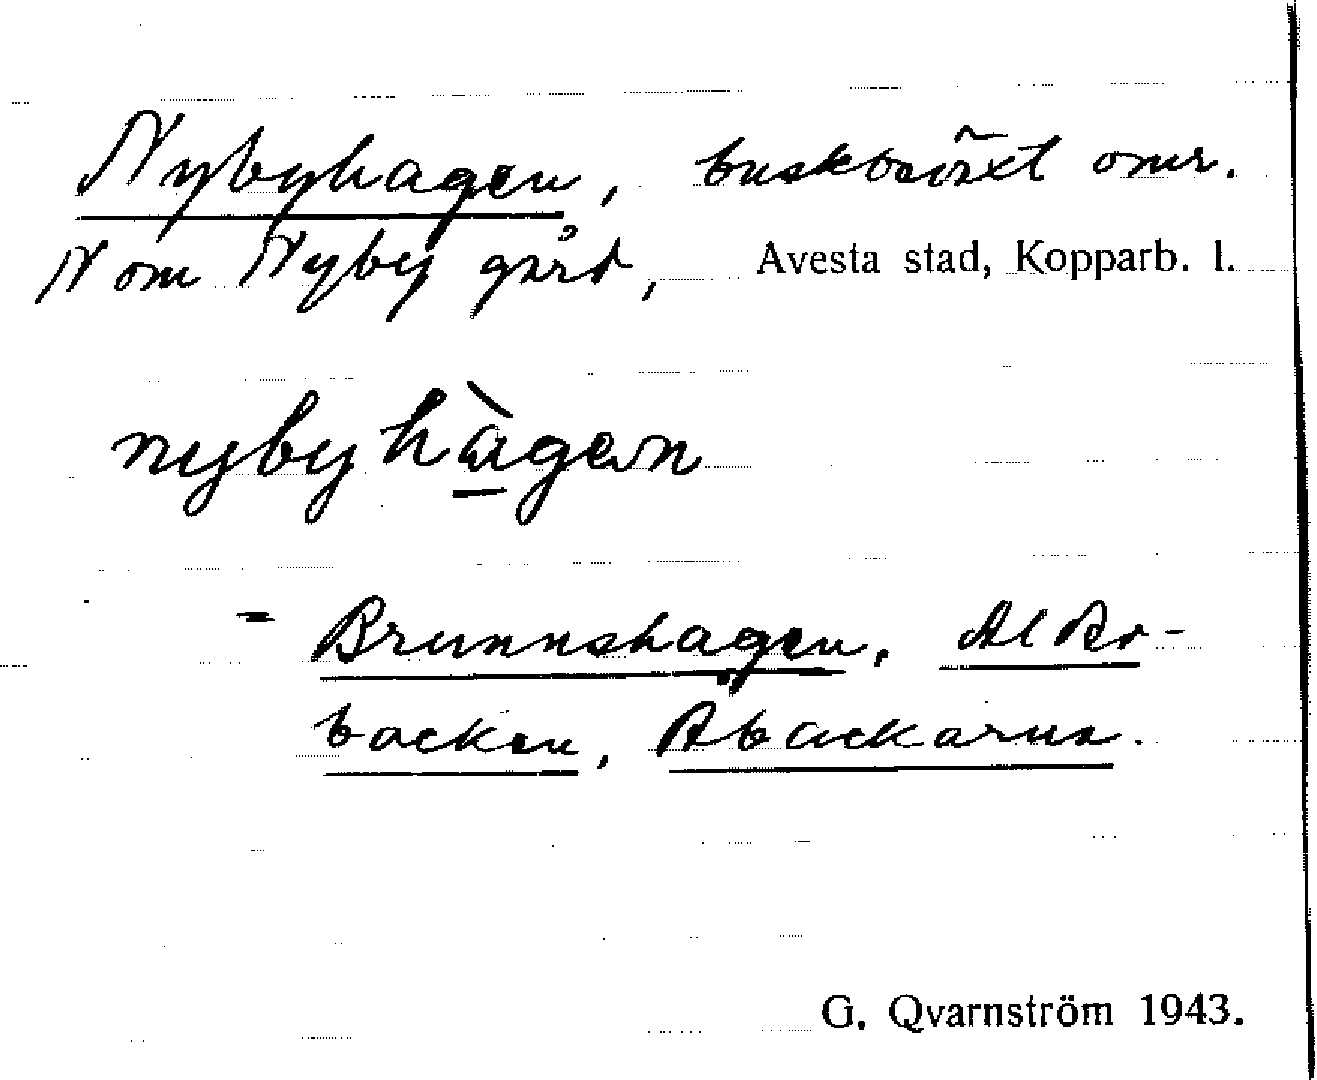 Nybyhagen, buskbväxt omr.
N om Nyby gård, Avesta stad, Kopparb. l.
nybyhàgen
= Brunnshagen,
backen, Åbackarna.
G. Qvarnström 1943.